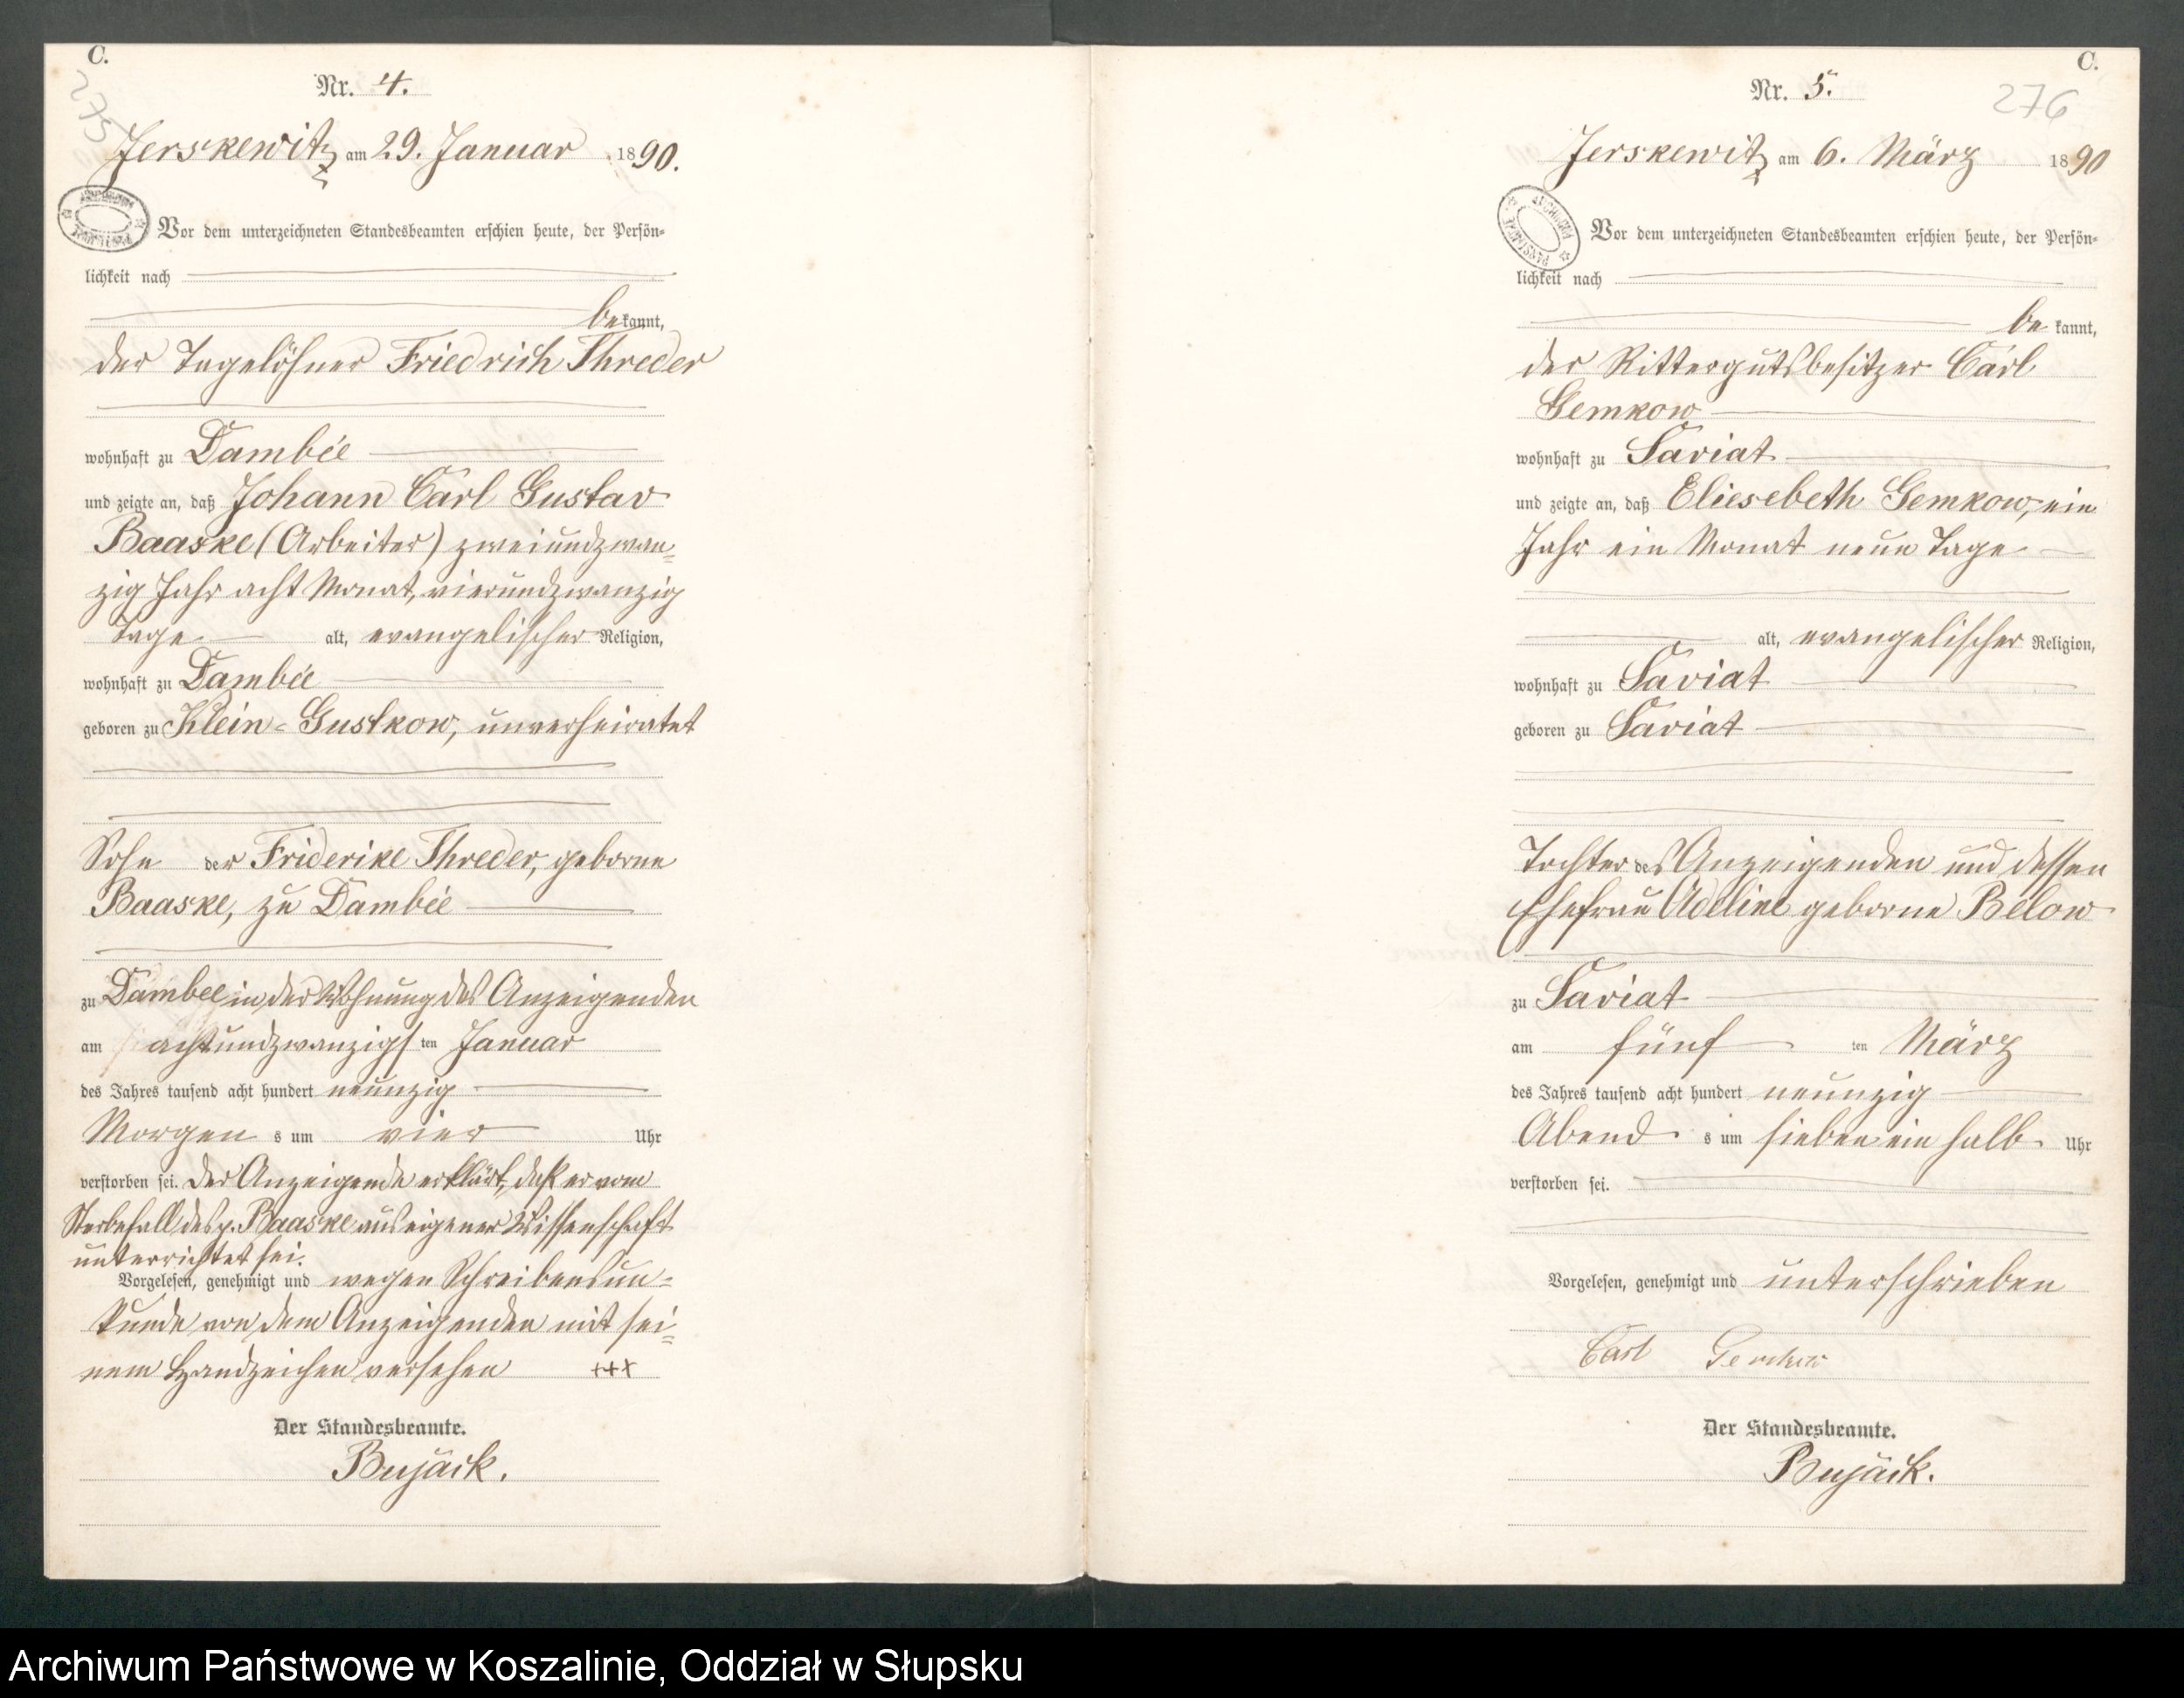 C.
Nr. 4.
275
Jerskewitz am 29. Januar 1890.
Vor dem unterzeichneten Standesbeamten erschien heute, der Persön-
lichkeit nach
bekannt,
der Tagelöhner Friedrich Threder
wohnhaft zu Dambée
und zeigte an, daß Johann Carl Gustav
Baaske (Arbeiter) zweiundzwan-
zig Jahr acht Monat, vierundzwanzig
Tage alt, evangelischer Religion,
wohnhaft zu Dambée
geboren zu Klein-Gustkow, unverheiratet
Sohn der Friderike Threder, geborne
Baaske, zu Dambée
zu Dambee in der Wohnung des Anzeigenden
am achtundzwanzigsten Januar
des Jahres tausend acht hundert neunzig
Morgens um vier Uhr
verstorben sei. Der Anzeigende erklärt, daß er vom
Sterbefall des p. Baaske aus eigener Wissenschaft
unterrichtet sei.
Vorgelesen, genehmigt und wegen Schreibensun-
kunde von dem Anzeigenden mit sei-
nem Handzeichen versehen +++
Der Standesbeamte.
Bujäck.
C.
Nr. 5.
276
Jerskewitz am 6. März 1890
ARCHIWUM PAŃSTWOWE
Vor dem unterzeichneten Standesbeamten erschien heute, der Persön-
lichkeit nach
bekannt,
der Rittergutsbesitzer Carl
Gemkow
wohnhaft zu Saviat
und zeigte an, daß Eliesebeth Gemkow, ein
Jahr ein Monat neun Tage
alt, evangelischer Religion,
wohnhaft zu Saviat
geboren zu Saviat
Tochter des Anzeigenden und dessen
Ehefrau Adeline geborne Below
zu Saviat
am fünften März
des Jahres tausend acht hundert neunzig
Abends um sieben ein halb Uhr
verstorben sei.
Vorgelesen, genehmigt und unterschrieben
Carl Gemkow
Der Standesbeamte.
Bujäck.
Archiwum Państwowe w Koszalinie, Oddział w Słupsku